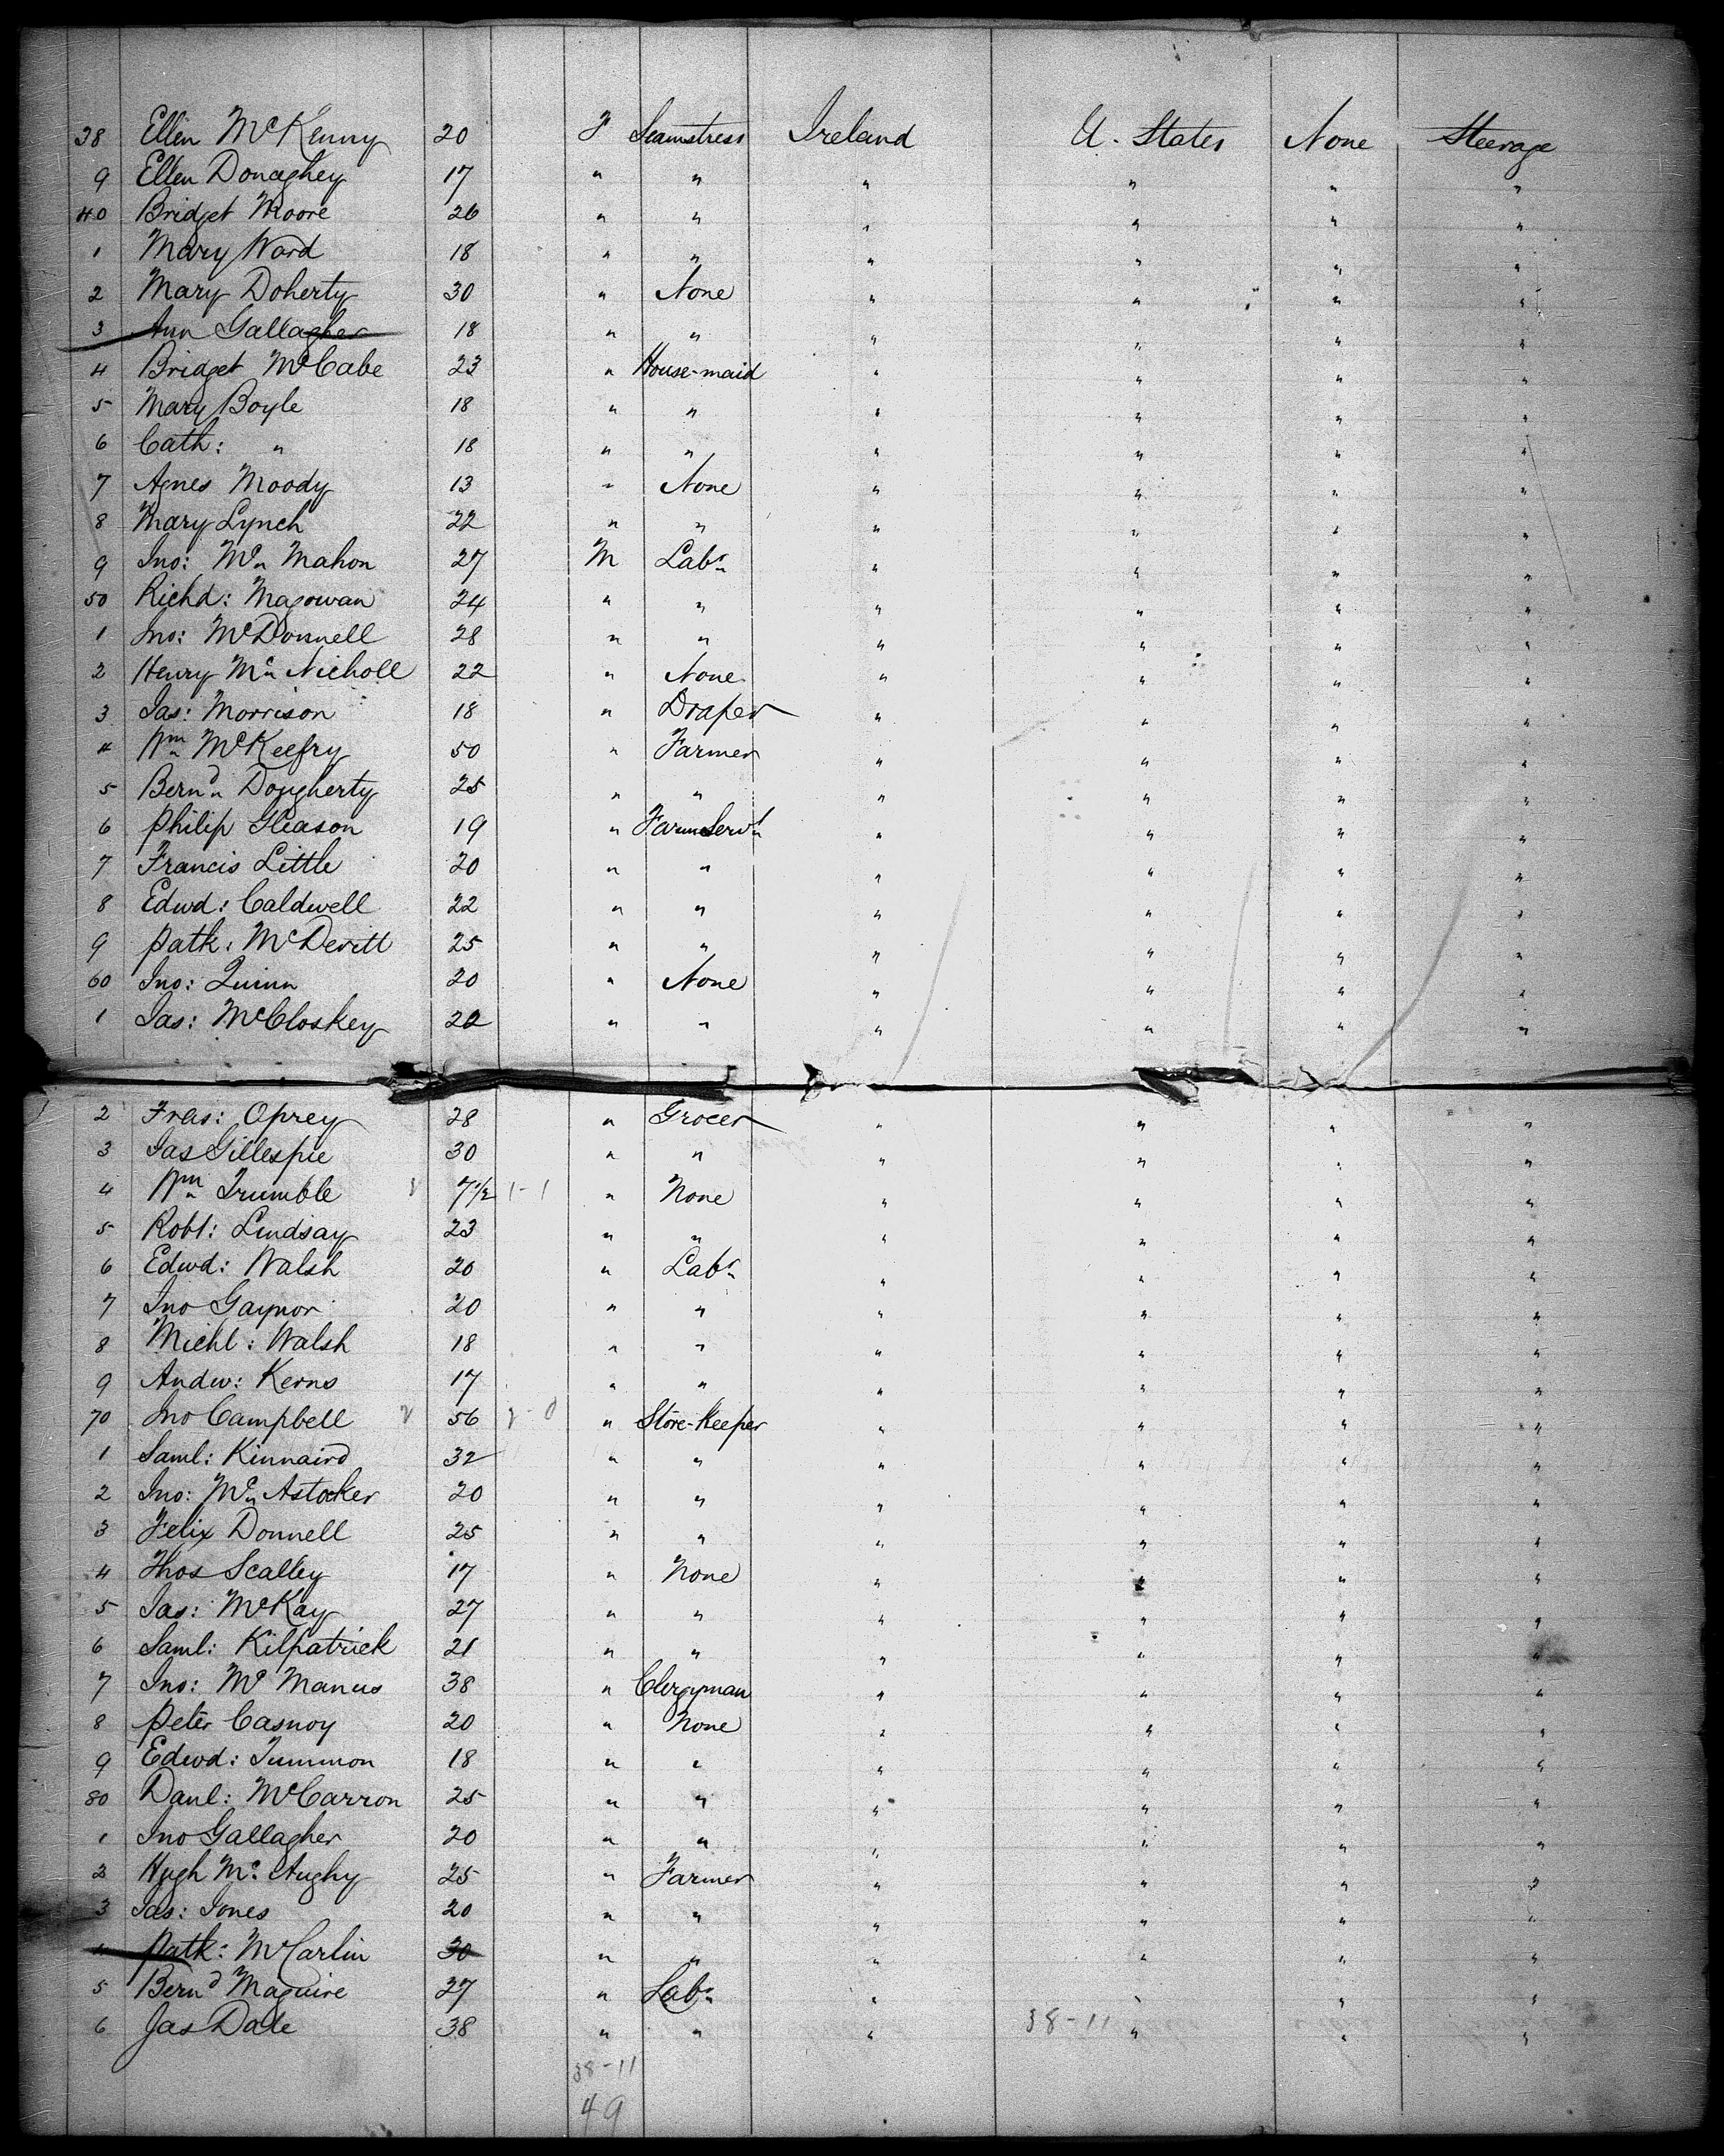 38 Ellen McKenny 20 F Seamstress Ireland U. States None Steerage
9 Ellen Donaghey 17 " " " " " "
40 Bridget Moore 26 " " " " " "
1 Mary Ward 18 " " " " " "
2 Mary Doherty 30 " None " " " "
3 Ann Gallagher 18 " " " " " "
4 Bridget McCabe 23 " House-maid " " " "
5 Mary Boyle 18 " " " " " "
6 Cath: " 18 " " " " " "
7 Agnes Moody 13 " None " " " "
8 Mary Lynch 22 " " " " " "
9 Jno: Mc Mahon 27 M Labr " " " "
50 Richd: Magowan 24 " " " " " "
1 Jno: McDonnell 28 " " " " " "
2 Henry Mc Nicholl 22 " None " " " "
3 Jas: Morrison 18 " Draper " " " "
4 Wm McKeefry 50 " Farmer " " " "
5 Bernd Dougherty 25 " " " " " "
6 Philip Gleason 19 " FarmServt " " " "
7 Francis Little 20 " " " " " "
8 Edwd: Caldwell 22 " " " " " "
9 Patk: McDevitt 25 " " " " " "
60 Jno: Quinn 20 " None " " " "
1 Jas: McCloskey 22 " " " " " "
2 Fras: Oprey 28 " Grocer " " " "
3 Jas Gillespie 30 " " " " " "
4 Wm Trumble 7 1/2 1-1 " None " " " "
5 Robt: Lindsay 23 " " " " " "
6 Edwd: Walsh 20 " Labr " " " "
7 Jno Gaynor 20 " " " " " "
8 Michl: Walsh 18 " " " " " "
9 Andw: Kerns 17 " " " " " "
70 Jno Campbell 56 " Store-Keeper " " " "
1 Saml: Kinnaird 32 " " " " " "
2 Jno: Mc Astocker 20 " " " " " "
3 Felix Donnell 25 " " " " " "
4 Thos Scalley 17 " None " " " "
5 Jas: McKay 27 " " " " " "
6 Saml: Kilpatrick 21 " " " " " "
7 Jno: Mc Manus 38 " Clergyman " " " "
8 Peter Casnoy 20 " None " " " "
9 Edwd: Tummon 18 " " " " " "
80 Danl: McCarron 25 " " " " " "
1 Jno Gallagher 20 " " " " " "
2 Hugh Mc Aughy 25 " Farmer " " " "
3 Jas: Jones 20 " " " " " "
4 Patk: McCarlin 30 " " " " " "
5 Bernd Maguire 27 " Labr " " " "
6 Jas Dale 38 " " " 38-11 " " "
38-11
49